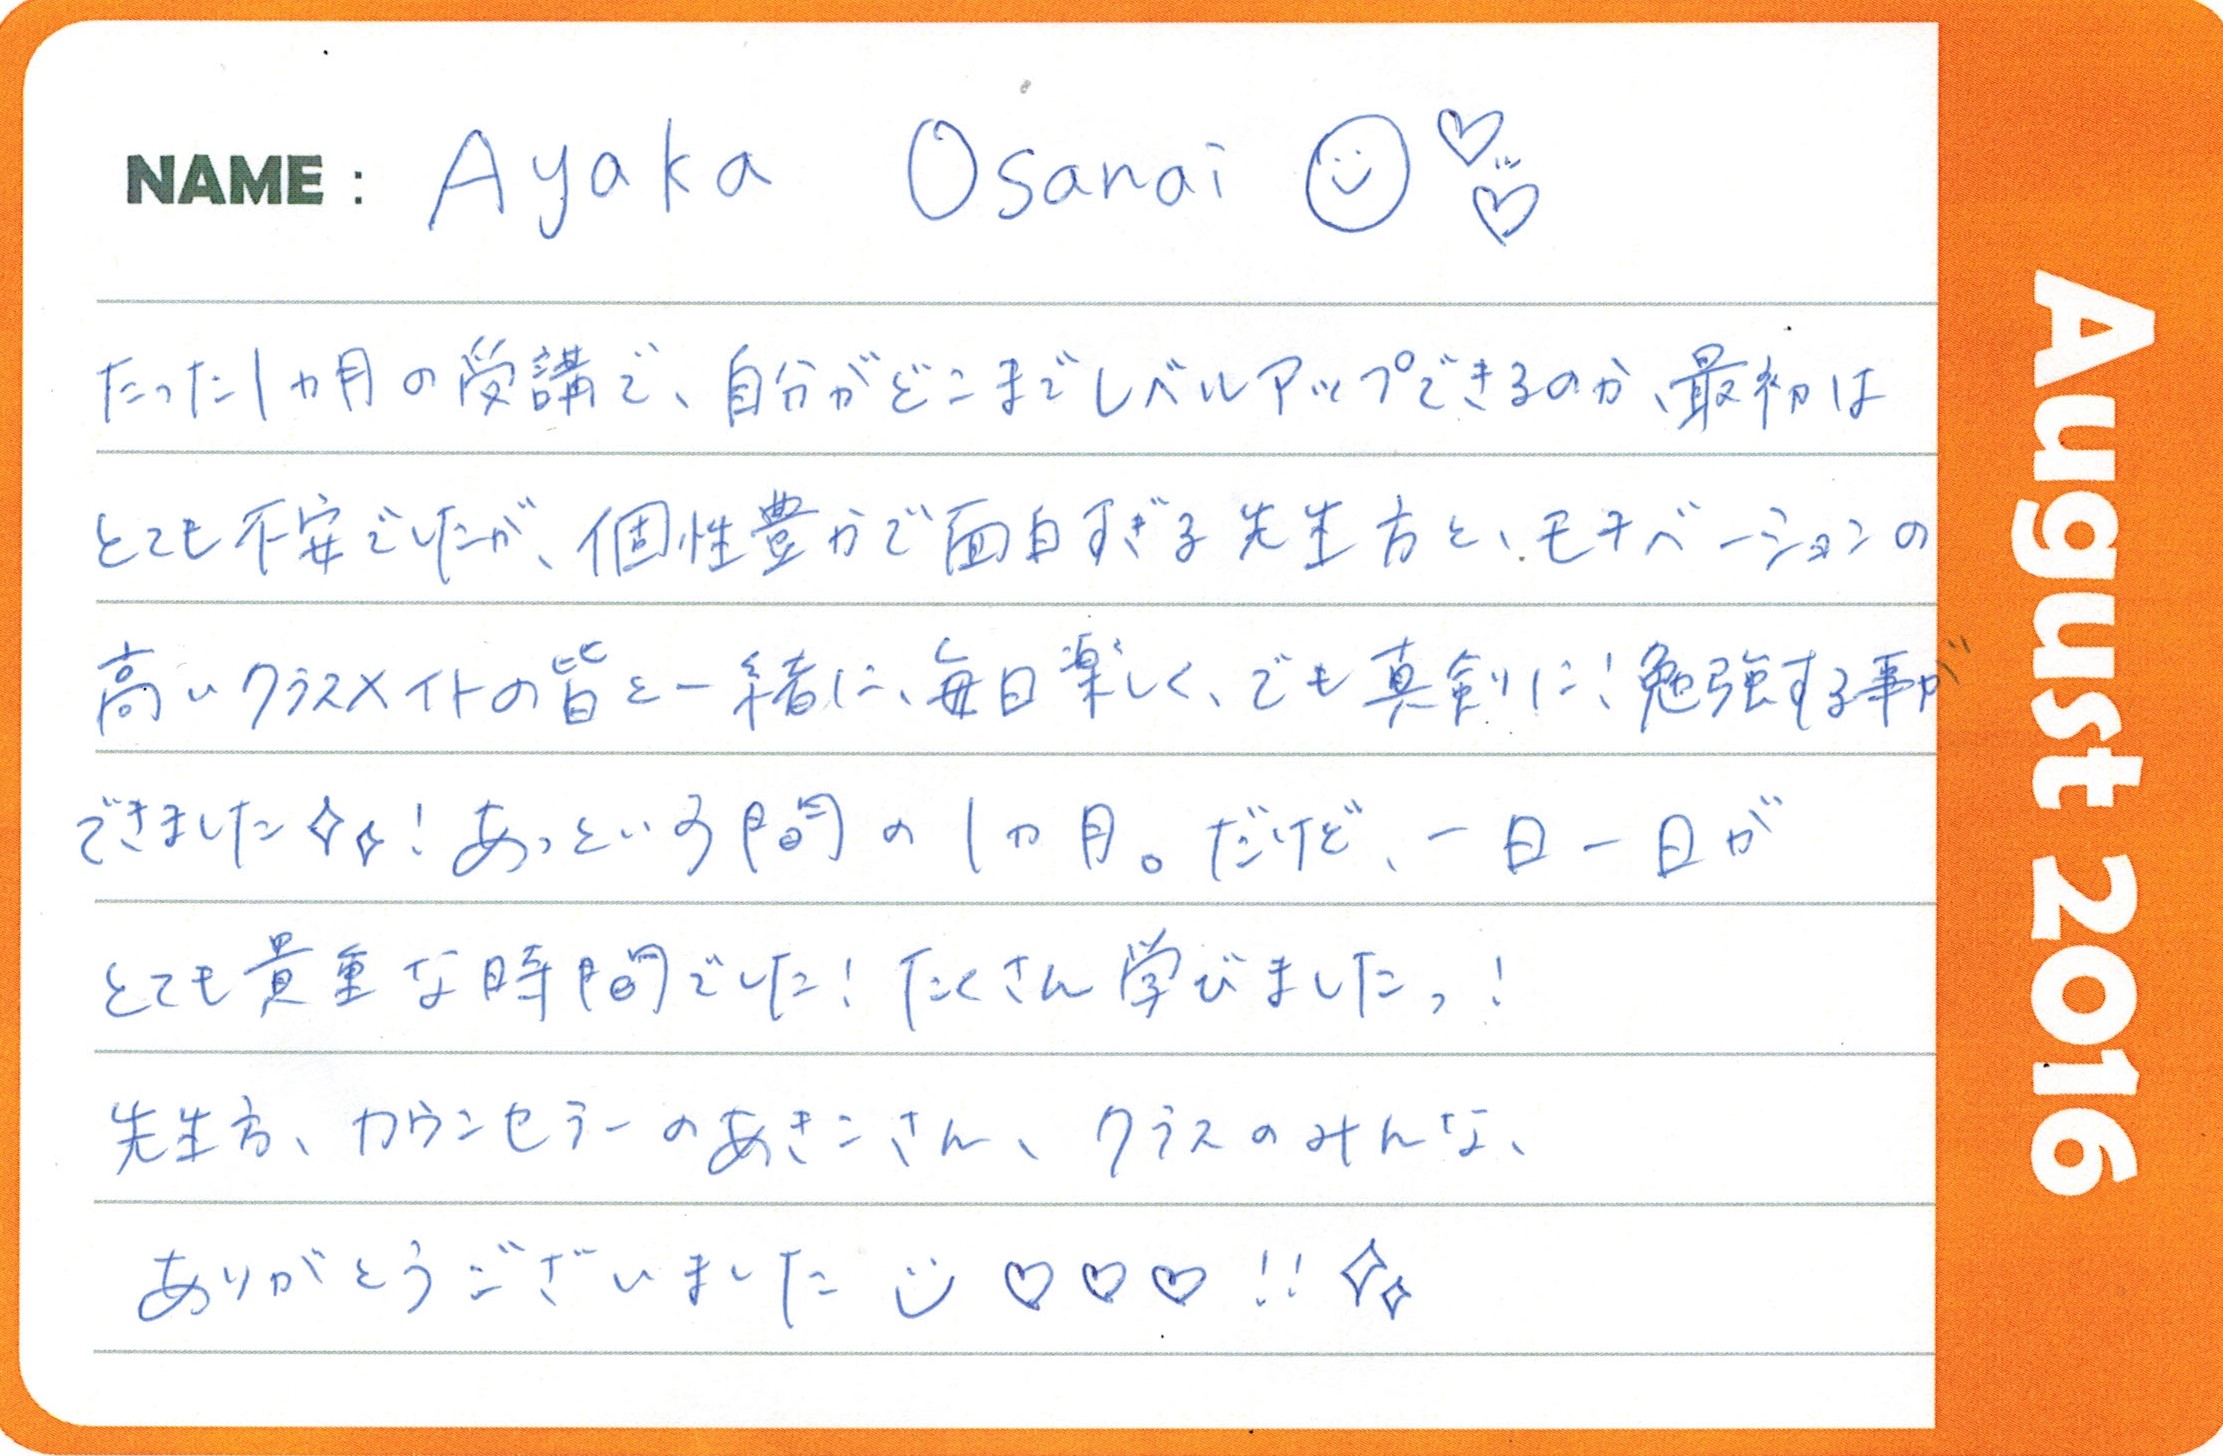 NAME : Ayaka Osanai ☺♡♡
たった1ヵ月の受講で、自分がどこまでレベルアップできるのか、最初は
とても不安でしたが、個性豊かで面白すぎる先生方と、モチベーションの
高いクラスメイトの皆と一緒に、毎日楽しく、でも真剣に!勉強する事が
できました✧✧!あっという間の1ヵ月。だけど、一日一日が
とても貴重な時間でした!たくさん学びましたっ!
先生方、カウンセラーのあきこさん、クラスのみんな、
ありがとうございました ☺ ♡♡♡!!✧✧
August 2016